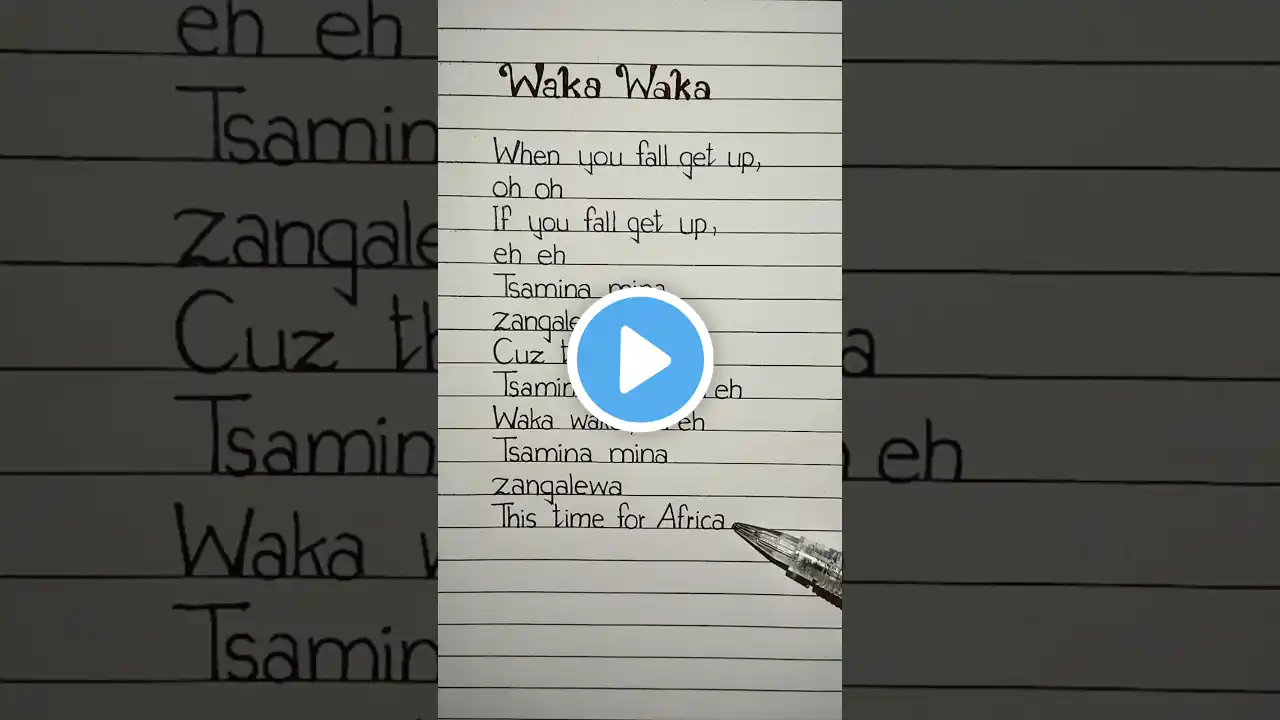 Waka Waka
When you fall get up,
oh oh
If you fall get up,
eh eh
Tsamina mina
Cuz
eh
Waka eh
Tsamina mina
zangalewa
This time for Africa